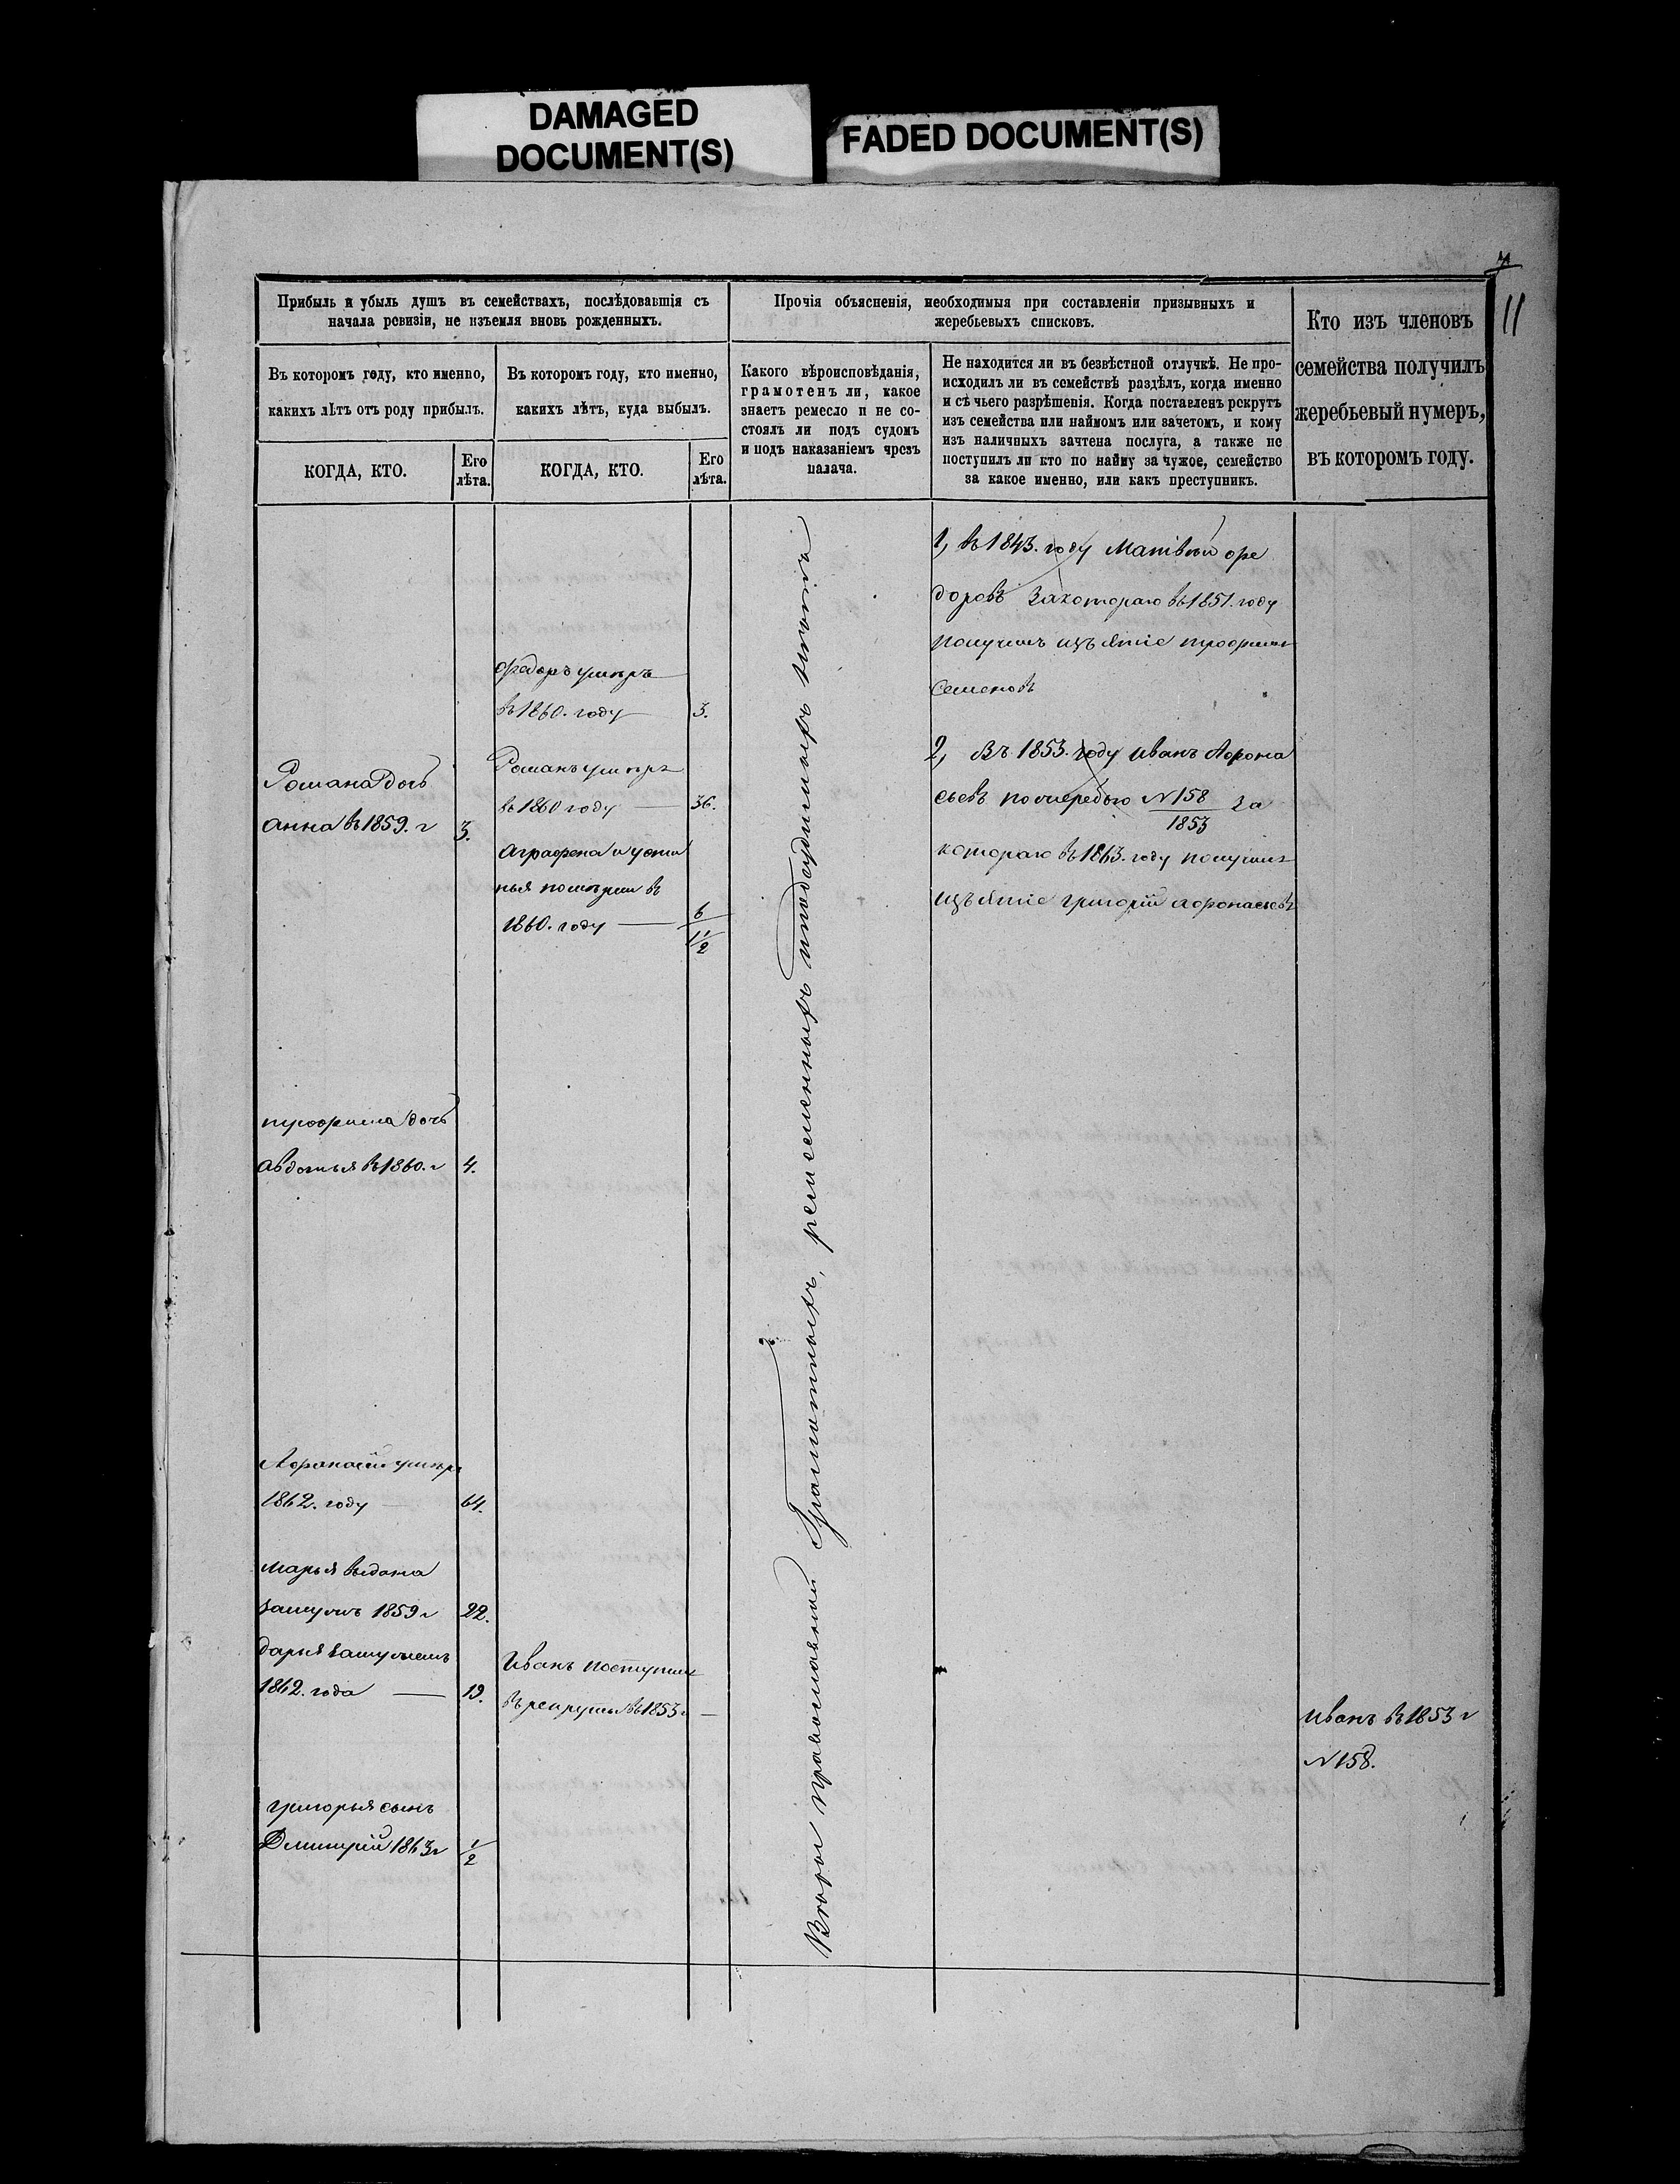 DAMAGED
DOCUMENT(S)
FADED DOCUMENT(S)
11
Прибыль и убыль душъ въ семействахъ, послѣдовавшія съ
начала ревизіи, не изъемля вновь рожденныхъ.
Въ которомъ году, кто именно,
какихъ лѣтъ отъ роду прибылъ.
КОГДА, КТО.
Его
лѣта.
Въ которомъ году, кто именно,
какихъ лѣтъ, куда выбылъ.
КОГДА, КТО.
Его
лѣта.
Прочія объясненія, необходимыя при составленіи призывныхъ и
жеребьевыхъ списковъ.
Какого вѣроисповѣданія,
грамотенъ ли, какое
знаетъ ремесло и не со-
стоялъ ли подъ судомъ
и подъ наказаніемъ чрезъ
палача.
Не находится ли въ безвѣстной отлучкѣ. Не про-
исходилъ ли въ семействѣ раздѣлъ, когда именно
и съ чьего разрѣшенія. Когда поставленъ рекрутъ
изъ семейства или наймомъ или зачетомъ, и кому
изъ наличныхъ зачтена послуга, а также не
поступилъ ли кто по найму за чужое, семейство
за какое именно, или какъ преступникъ.
Кто изъ членовъ
семейства получилъ
жеребьевый нумеръ,
въ которомъ году.
Романа дочь
анна въ 1859. г 3.
трофима дочь
авдотья въ 1860. г 4.
Афанасій умеръ
1862. году 64.
марья выдана
замужъ 1859 г 22.
дарья замужемъ
1862. года 19.
григорья сынъ
Дмитрій 1863 г 1/2
федоръ умеръ
въ 1860. году 3.
Романъ умеръ
въ 1860 году 36.
аграфена и усти
нья померли въ
1860. году 6
1 1/2
Иванъ поступилъ
въ рекруты въ 1853 г
Вѣры православной Грамотныхъ, ремесленныхъ и подсудимыхъ
1, въ 1843. году Матвѣй фе
доровъ за котораго въ 1851. году
получилъ изъятіе трофимъ
Семеновъ
2, Въ 1853. году иванъ Афона
сьевъ по очередью N 158 за
1853
котораго въ 1863. году получилъ
изъятіе григорій афонасьевъ
иванъ въ 1853 г
N 158.